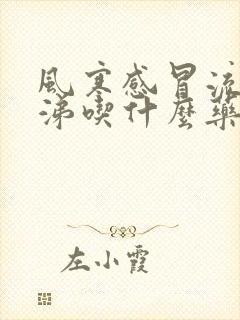 風寒感冒流
涕喫什麼藥
左小霞